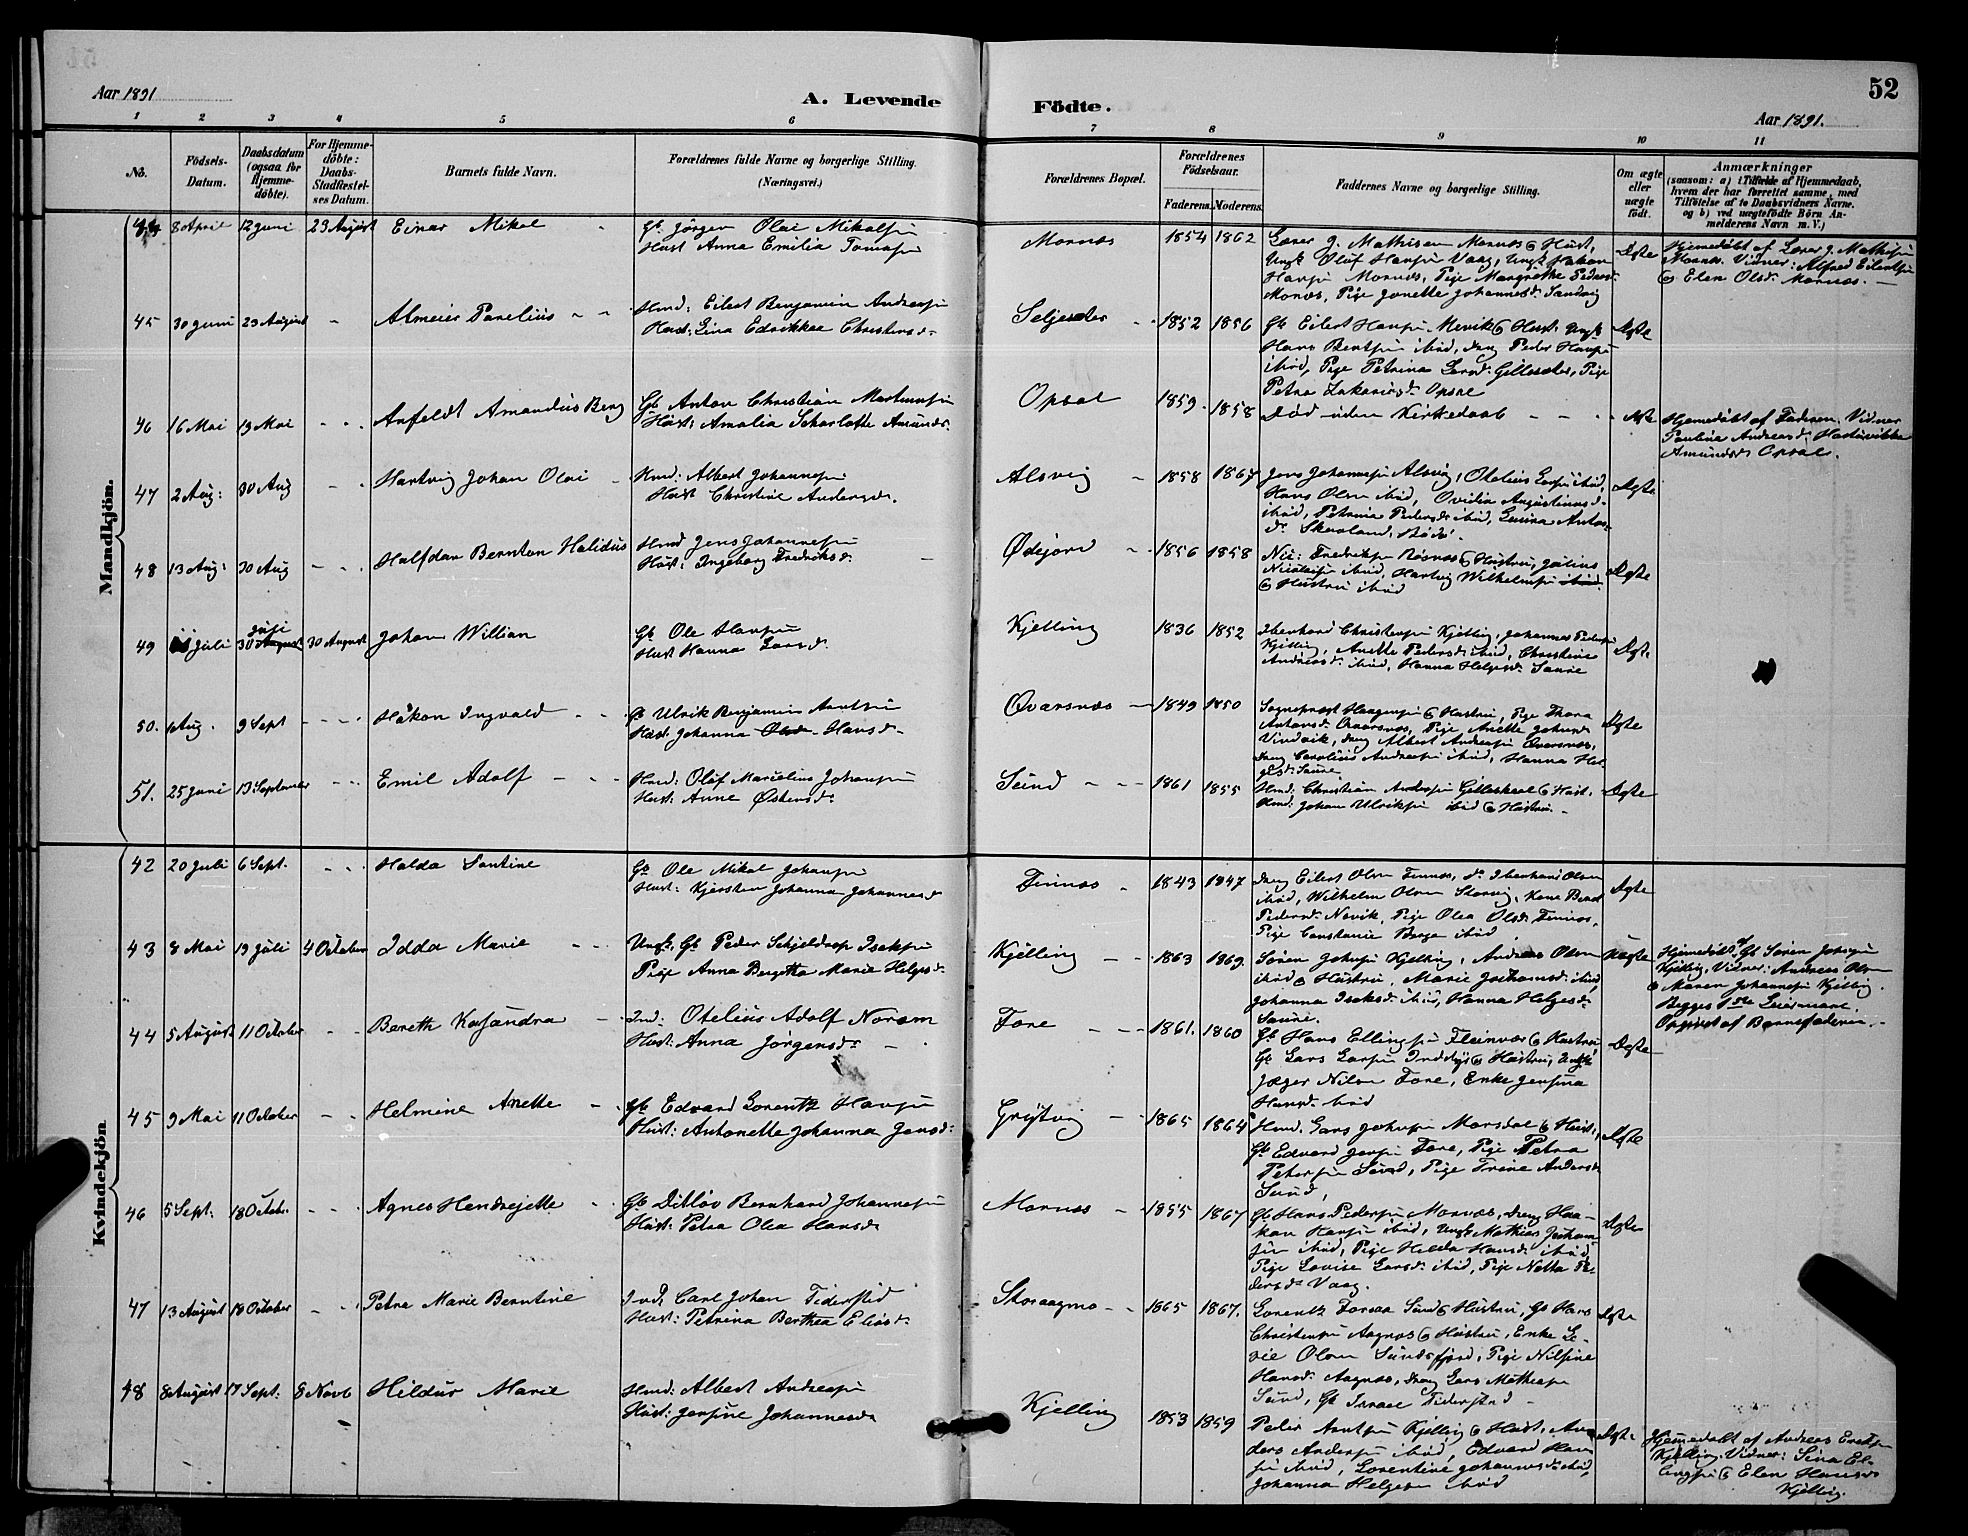 52
Aar 1891
A. Levende
Födte.
Aar 1891.
1 2 3 4 5 6 7 8 9 10 11
No.
Födsels-
Datum.
Daabsdatum
(ogsaa for
Hjemme-
döbte).
For Hjemme-
döbte:
Daabs-
Stadfæstel-
ses Datum.
Barnets fulde Navn.
Forældrenes fulde Navne og borgerlige Stilling.
(Næringsvei.)
Forældrenes Bopæl.
Forældrenes
Födselsaar.
Faderens. Moderens.
Faddernes Navne og borgerlige Stilling.
Om ægte
eller
uægte
födt.
Anmærkninger
(saasom: a) i Tilfælde af Hjemmedaab,
hvem der har forrettet samme, med
Tilföielse af to Daabsvidners Navne.
og b) ved uægtefödte Börn An-
melderens Navn m. V.)
Mandkjön.
44 8 April 12 Juni 23 August Einar Mikal
Gb. Jørgen Olai Mikalsen
Hust Anna Emilia Tomasd
Mornæs 1854 1862
Mathisen Mornæs & Hust,
Ungk Olaf Hansen Vaag, Ungk Hakon
Hansen Mornæs, Pige Margrethe Peders
Mornæs, Pige Janette Johannesd. Sandvig
Ægte
Hjemedøbt af Mathisen
Mornæs. Vidner: Alfred Eilertsen
& Elen Olsd. Mornæs.
45 30 Juni 23 August Almeier Parelius
Hmd: Eilert Benjamin Andreasen
Hust: Lina Edvikkea Christensd.
1852 1856
Gb Eilert Hansen Mevik & Hust. Ungk
Hans Bentsen ibid, Dreng Peder Hansen
ibid, Pige Petrina Larsd. Gillesæter, Pige
Petra Zakariasd. Opsal
Ægte
46 16 Mai 19 Mai Anfeldt Amandus Berg
Gb Anton Christian Martinusen
Hust: Amalia Scharlotte Amundsd.
Opsal 1859 1858
Død uden Kirkedaab
Ægte
Hjemedøbt af Faderen, Vidner
Pauline Andreasd.
Amundsd Opsal.
47 2 Aug: 30 Aug Hartvig Johan Olai
Hmd: Albert Johannesen
Hust Christine Andersd.
Alsvig 1858 1867
Jens Johannesen Alsvig, Otelius ibid,
Hans Olsen ibid, Ovidia Augustinusd
ibid, Petrina Pedersd ibid,
Ægte
48 13 Aug: 30 Aug Halfdan Bernton Halidus
Hmd Jens Johannesen
Hust: Ingeborg Fredriksd.
Ødejord 1856 1858
Nic: Fredriksen Røsnæs & Hustru, Julius
Nicolaisen ibid, Hartvig Wilhelmsen ibid.
& Hustru ibid
Ægte
49 Juli 30 August Juli 30 August Johan Willian
Gb Ole Hansen
Hust Hanna Larsd.
Kjelling 1836 1852
Eberhard Christensen Kjelling, Johannes Pedersen
Kjelling, Anette Pedersd. ibid, Christine
Andreasd. ibid, Hanna Helgesd. Saure
Ægte
50. Aug. 9 Sept Håkon Ingvald
Gb Ulrik Benjamin Arntsen
Hust: Johanna Olsd. Hansd.
Qvarsnæs 1849 1850
Sogneprest Haagensen & Hustru, Pige Thora
Antonsd. Qvarsnæs, Pige Anette
Vindvik, Dreng Albert Andreasen Qvarsnæs,
Dreng Carolius Andreasen ibid, Hanna Hel-
gesd. Saure
Ægte
51. 25 Juni 13 September Emil Adolf
Hmd: Olaf Marcelius Johansen
Hust: Anne Østensd.
Sund 1861 1855
Hmd: Christian Andersen Gilleskaal & Hust.
Hmd: Johan Ulriksen ibid & Hustru.
Ægte
Kvindekjön
42 20 Juli 6 Sept. Halda Santine
Gb Ole Mikal Johansen
Hust: Kjersten Johanna Johannesd
Finnæs 1843 1847
Dreng Eilert Olsen Finnæs, do Eberhard Olsen
ibid, Wilhelm Olsen Storvig,
Pedersd. Novik, Pige Olea Olsd. Finnæs,
Pige Constance Berge ibid
Ægte
43 8 Mai 19 Juli 4 October Idda Marie
Ungk. Gb Peder Schjeldrop Isaksen
Pige Anna Bergetha Marie Helgesd.
Kjelling 1863 1869.
Søren Johnsen Kjelling, Andreas Olsen
ibid & Hustru, Marie Johannsd. ibid,
Johanna Isaksd. ibid, Hanna Helgesd.
Saure.
Uægte
Hjemedøbt af Gb Søren Johnsen
Kjelling, Vidner: Andreas Olsen
& Maren Johannesen Kjelling.
Begges 1ste Leiermaal.
Opgivet af Barnefaderen.
44 5 August 11 October Bereth Kasandra
Ind: Otelius Adolf Norum
Hust: Anna Jørgensd.
Fore 1861. 1860
Gb Hans Ellingsen Fleinvær & Hustru,
Gb Lars Larsen & Hustru, Ungk
Jæger Nilsen Fore, Enke Jensina
Hansd. ibid
Ægte
45 9 Mai 11 October Helmine Anette
Gb Edvard Lorentz Hansen
Hust: Antonette Johanna Jensd.
Grytvig 1865 1864
Hmd. Lars Johnsen Morsdal & Hust.,
Gb Edvard Jensen Fore, Pige Petra
Petersen Sund, Pige Trine Andersd.
Sund,
Ægte
46 5 Sept: 18 Octobr. Agnes Hendrejette
Gb Ditlov Bernhard Johannesen
Hust: Petra Olea Hansd.
Mornæs 1855 1867
Gb Hans Pedersen Mornæs, Dreng Haa-
kon Hansen ibid, Ungk Mathias Joham-
sen ibid, Pige Helda Hansd. ibid,
Pige Lovise Larsd. ibid, Pige Netta Pe-
dersd. Vaag.
Ægte
47 13 August 18 October Petra Marie Berntine
Ind: Carl Johan Fiderstid
Hust: Petrina Berthea Eliasd.
1865 1867.
Lorentz Forsaa Sund & Hustru, Gb Hans
Christensen Aagnæs & Hustru, Enke Le-
Olsen Sundsfjord, Pige Nilsine
Hansd. Aagnæs, Dreng Lars Mathisen
Sund, Gb Israel Fiderstad
Ægte
48 8 August 17 Sept: 8 Novb Hildur Marie
Hmd: Albert Andreasen
Hust: Jensine Johannesd
Kjelling 1853 1859
Peder Arntsen Kjelling & Hust, An-
ders Andersen ibid, Edvard Han-
sen ibid, Lorentine Johannesd ibid,
Johanna Helgesen ibid
Ægte
Hjemedøbt af Andreas
Kjelling, Vidner: Sina El-
lingsen & Elen Hansd
Kjelling.